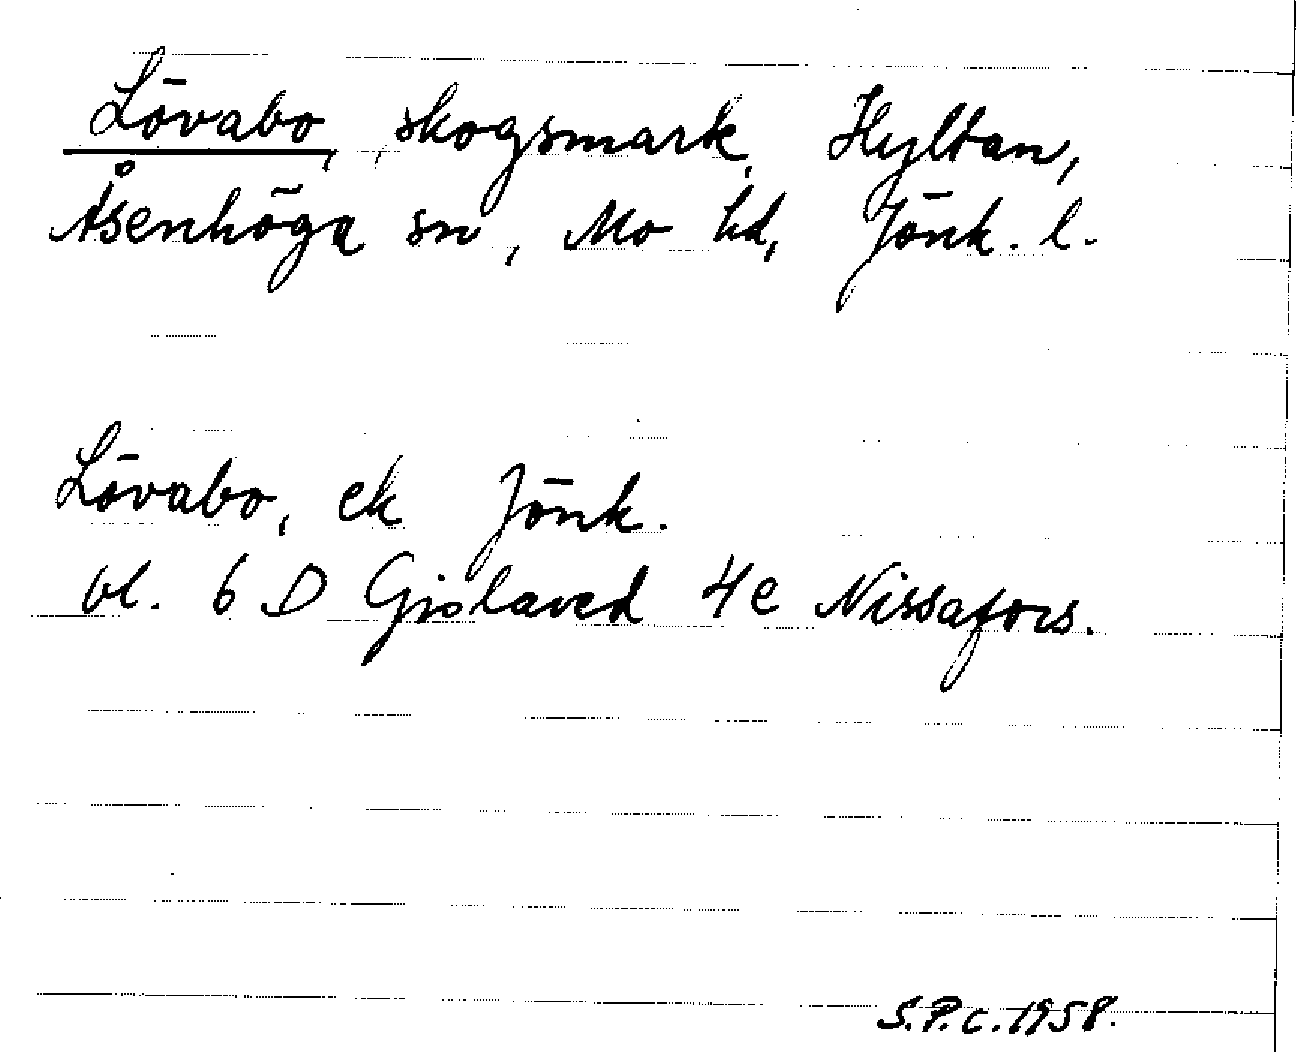 Lövabo, skogsmark, Hyltan,
Åsenhöga sn, Mo hd, Jönk. l.
Lövabo, ek Jönk.
bl. 6 D Gislaved 4e Nissafors.
S.P.C. 1958.